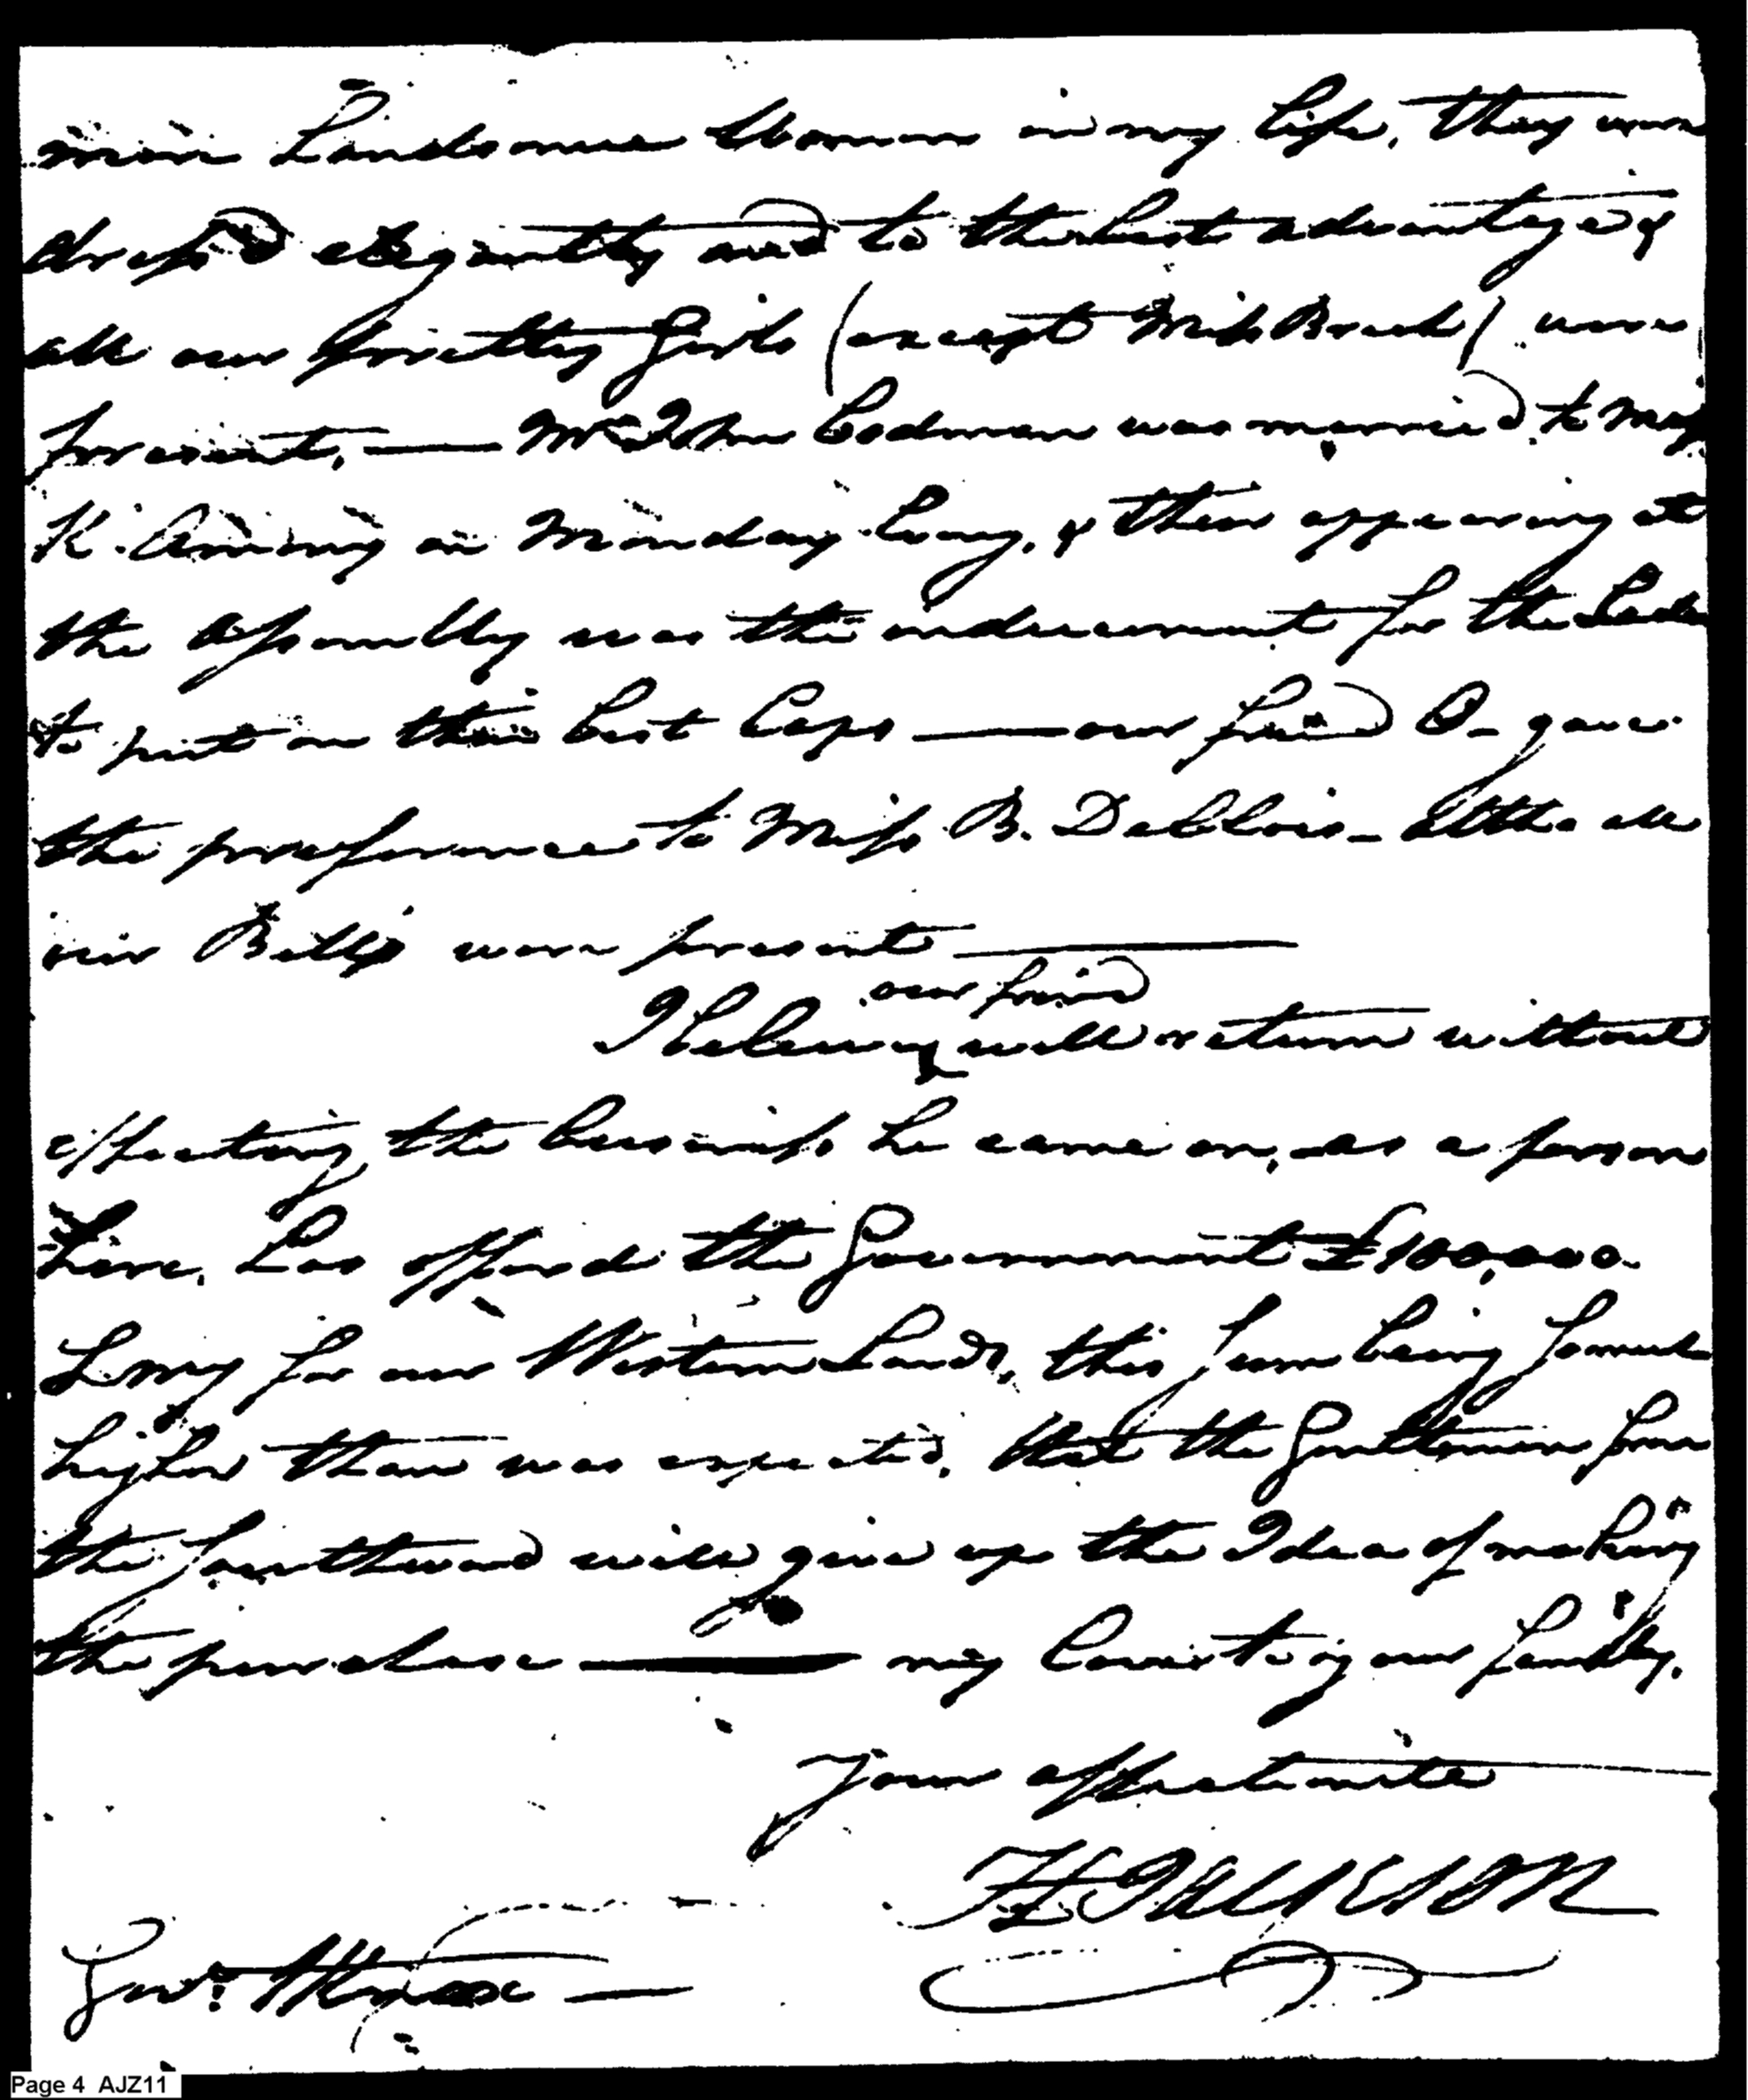 more handsome Women in my life, they were
dress'd elegantly and to the best advantage &
all our pretty Girls (except Miss Breck) were
present, — Mr John Codman was married to Miss
K. Amory on Monday Eveng, & their appearing at
the Assembly was the inducement for the Ladies
to put on their best Caps — our friend O- gave
the preference to Miss B. Deblois - all the
our Betts were present —
our friend
I believe will return without
effecting the business he came on, as a person
here, has offered the Government £100,000
Lmy for our Western Lands, this sum being so much
higher than was expected, that the Gentlemen from
the southward will give up the Idea of making
the purchase — my Love to your family.
Your affectionate
H JACKSON
Genl. Knox —
Page 4 AJZ11